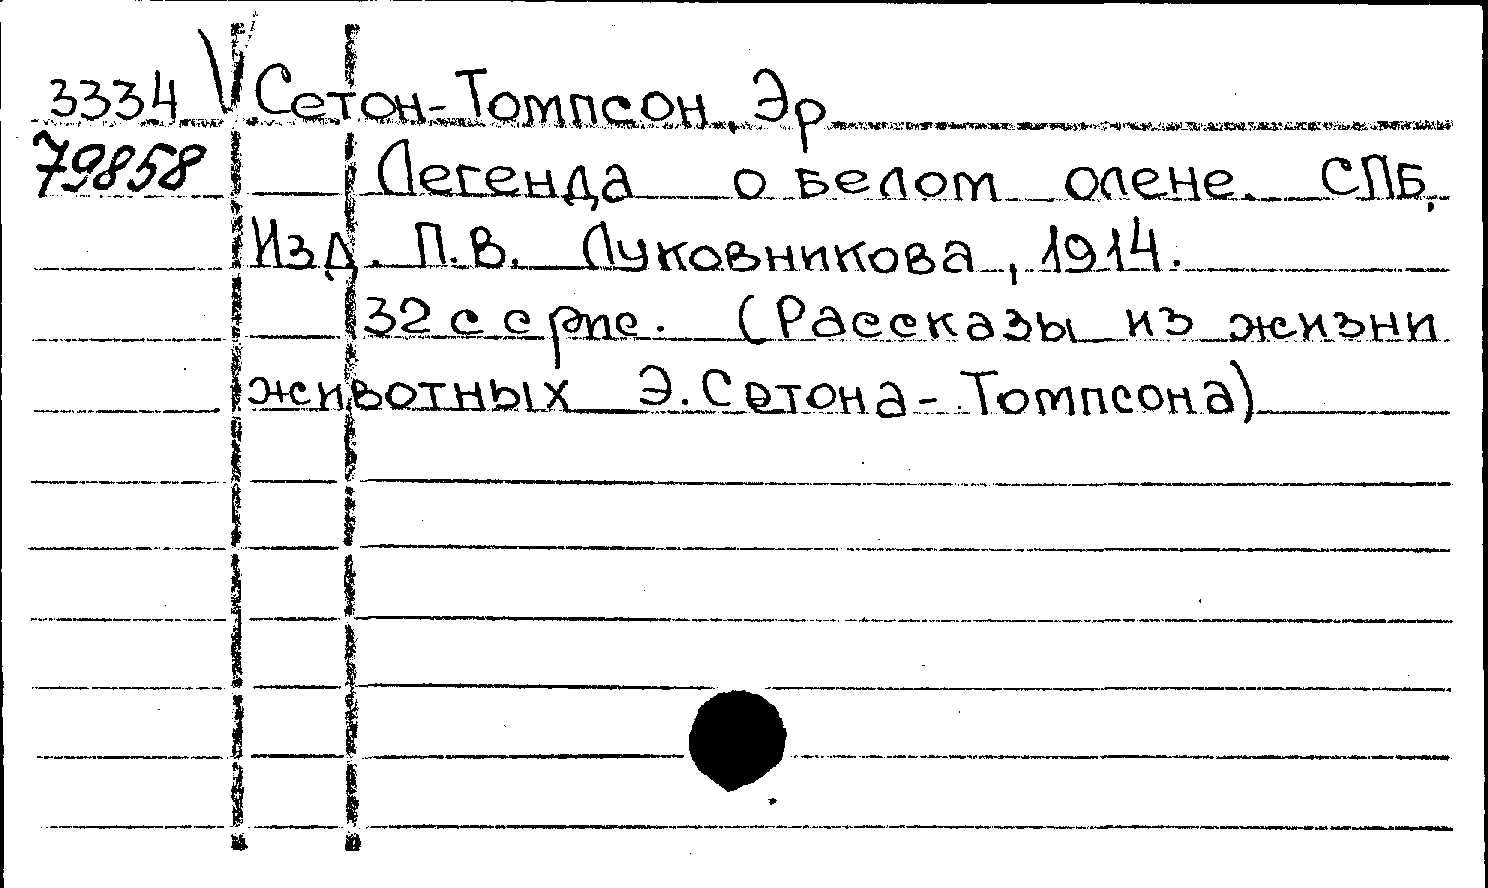 3334 V Сетон-Томпсон, Эр
79858 Легенда о белом олене. СПБ,
Изд. П.В. Луковникова, 1914.
32 с с рис. (Рассказы из жизни
животных Э. Сетона-Томпсона)